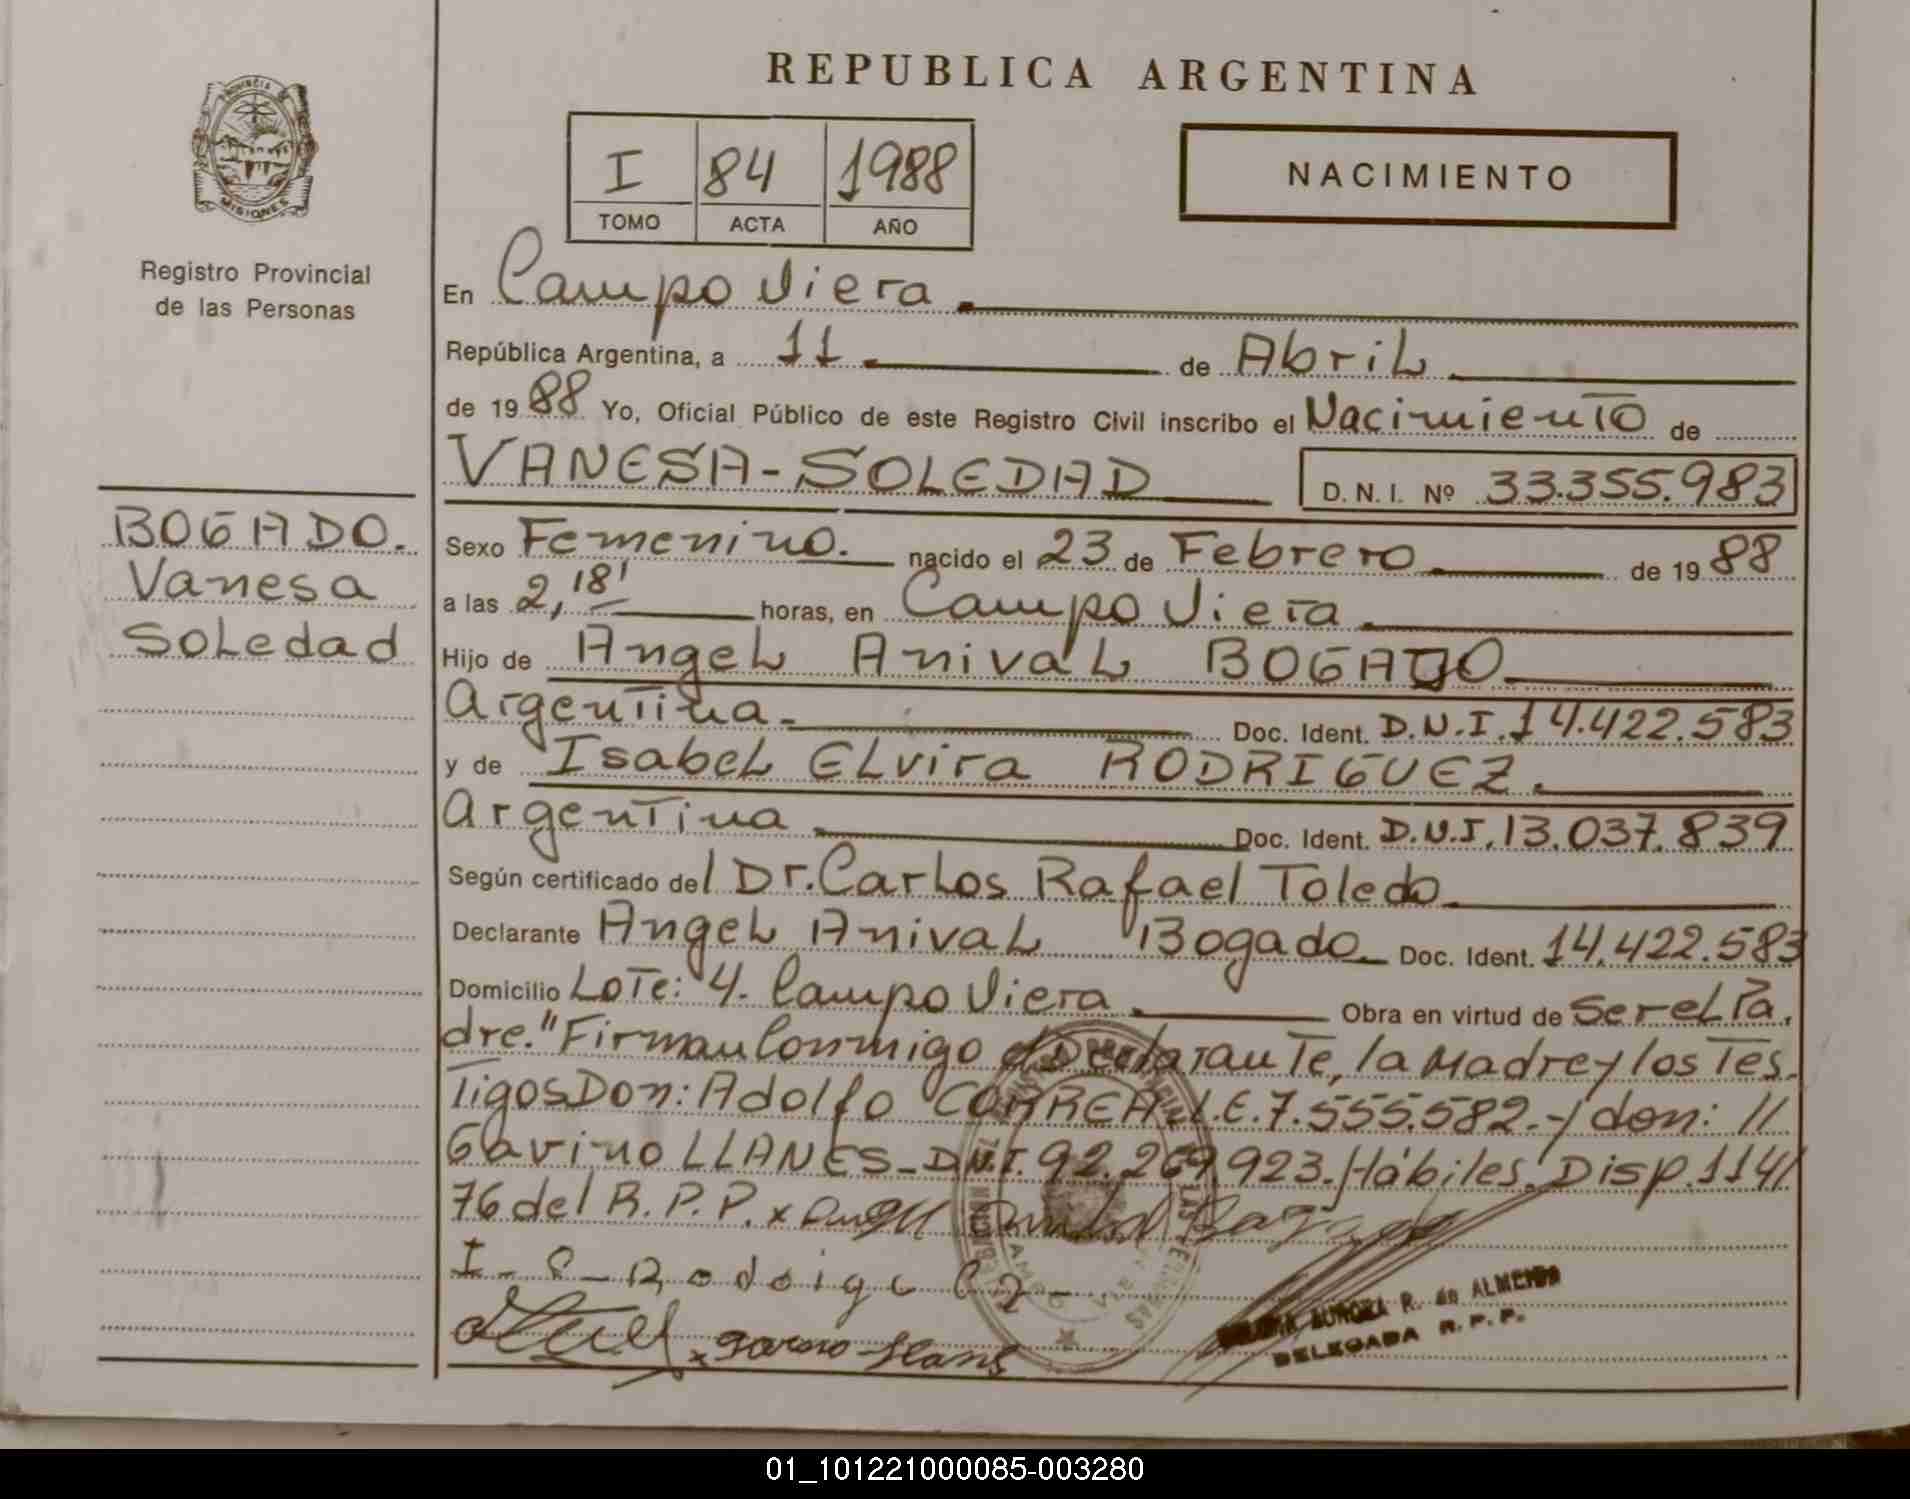 REPUBLICA ARGENTINA
PROVINCIA DE
MISIONES
Registro Provincial
de las Personas
I 84 1988
TOMO ACTA AÑO
NACIMIENTO
En Campo Viera
República Argentina, a 11 de Abril
de 1988 Yo, Oficial Público de este Registro Civil inscribo el Nacimiento de
VANESA-SOLEDAD D. N. I. Nº 33.355.983
BOGADO.
Vanesa
Soledad
Sexo Femenino. nacido el 23 de Febrero de 1988
a las 2,18' horas, en Campo Viera
Hijo de Angel Anival BOGADO
Argentina Doc. Ident. D.N.I. 14.422.583
y de Isabel Elvira RODRIGUEZ.
Argentina Doc. Ident. D.N.I. 13.037.839
Según certificado del Dr. Carlos Rafael Toledo
Declarante Angel Anival Bogado Doc. Ident. 14.422.583
Domicilio Lote: 4. Campo Viera Obra en virtud de Ser el Pa.
dre." Firman Conmigo el Declarante, la Madre y los Tes.
Tigos Don: Adolfo CORREA L.E. 7.555.582.-/ don: //
Gavino LLANES-D.N.I. 92.269.923. Hábiles. Disp. 114/
76 del R.P.P. x
I-
AURORA R. de ALMEIDA
DELEGADA R. P. P.
01_101221000085-003280